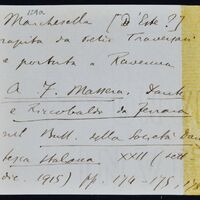 Marchesella [D'Este ?]
rapita da Traversari
e portata a Ravenna
A. F. Massera. Dante
e Riccobaldo da Ferrara
nel Bull. della Società Dan
tesca Italiana XXII
dic. 1915) pp. 174-175,